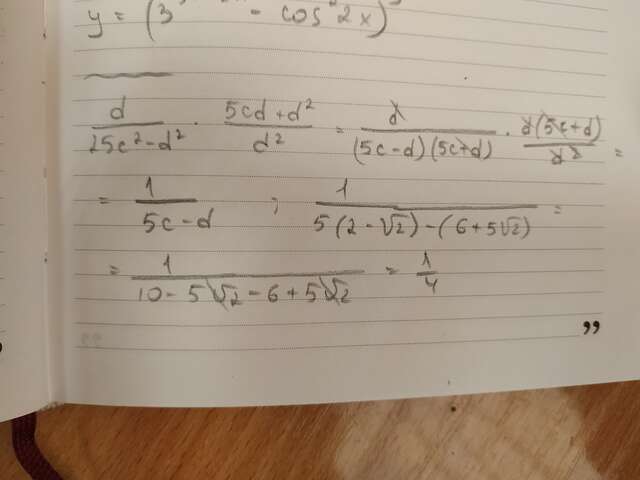 y = (3 - cos² 2x)
d/(25c² - d²) · (5cd + d²)/d² = d/((5c - d)(5c + d)) · d(5c + d)/d² =
= 1/(5c - d) ; 1/(5(2 - √2) - (6 + 5√2)) =
= 1/(10 - 5√2 - 6 + 5√2) = 1/4